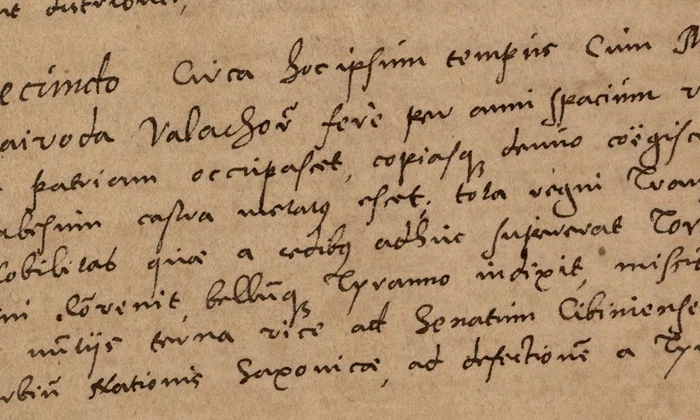 distri
ecundo Circa hoc ipsum tempus Cum M
aivoda Valachor̃ ferè per anni spacium
patriam occupasset, copiasq; denuo coëgisse
abesum castra metatq esset, tota regni Tran
obilitas quæ a cædibq adhuc supererat Tor
Cõvenit, bellũq; Tyranno indixit, missis
nũtijs terna vice ad Senatum Cibiniense
rbiũ Nationis Saxonicæ, ad defectionẽ a Ty